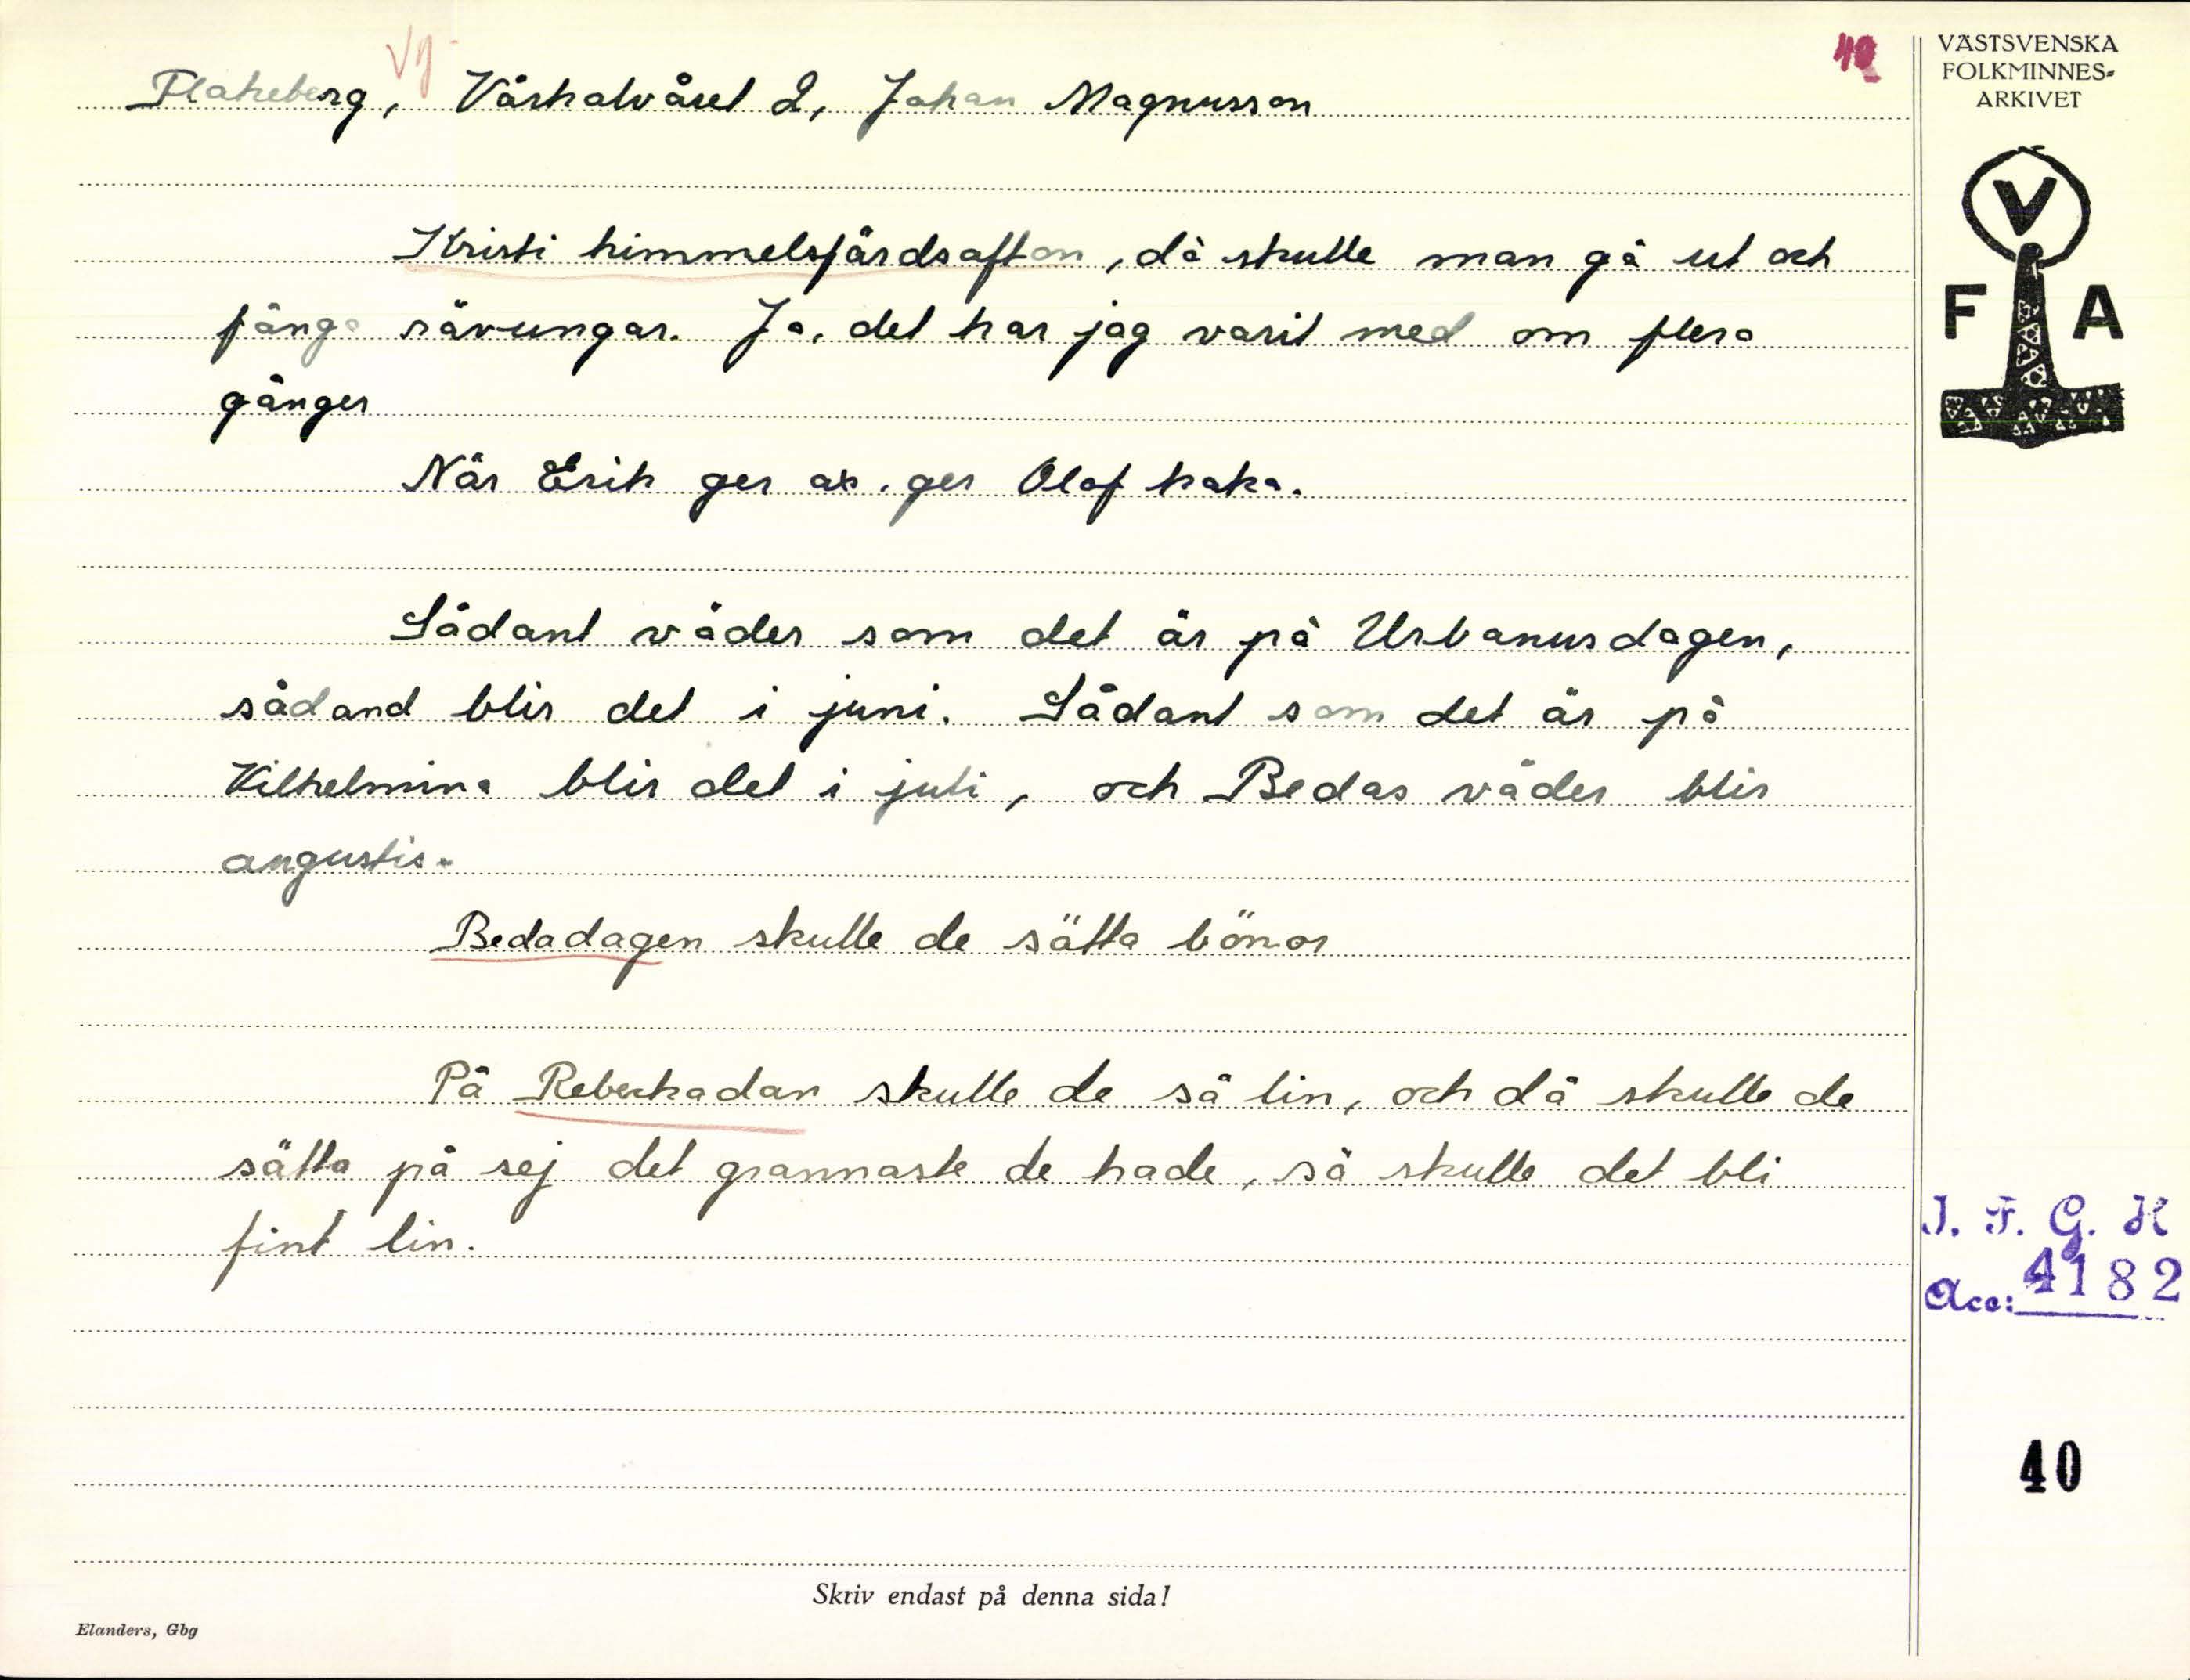 Vg
40
Flakeberg, Vårkalvåret 2, Johan Magnusson
VÄSTSVENSKA
FOLKMINNES-
ARKIVET
V
F A
Kristi himmelsfärdsafton, då skulle man gå ut och
fånga rävungar. Ja, det har jag varit med om flera
gånger
När Erik ger ax, ger Olof kaka.
Sådant väder som det är på Urbanusdagen,
sådand blir det i juni. Sådant som det är på
Vilhelmina blir det i juli, och Bedas väder blir
augustis.
Bedadagen skulle de sätta bönor
På Rebeckadan skulle de så lin, och då skulle de
sätta på sej det grannaste de hade, så skulle det bli
fint lin.
I. F. G. H
Acc: 4182
40
Skriv endast på denna sida!
Elanders, Gbg